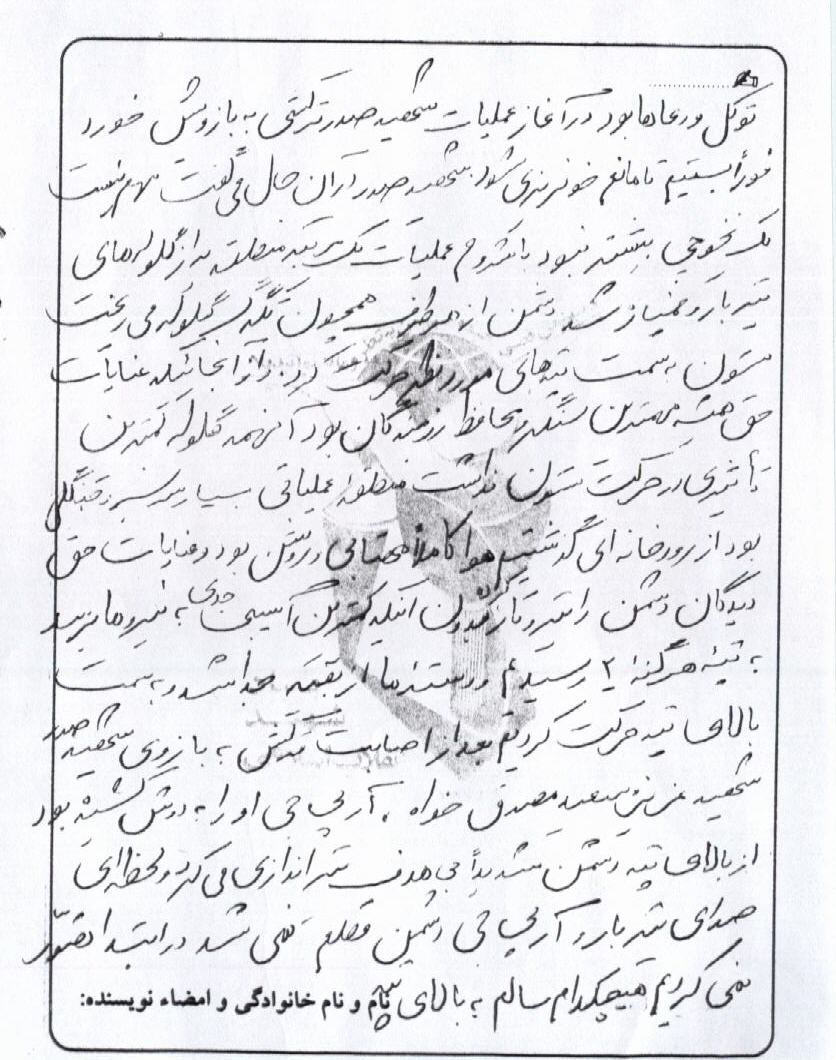 توکل و دعاها بود در آغاز عملیات شهید صدر ترکشی به بازویش خورد
فوراً بستیم تا مانع خونریزی شود. شهید صدر در آن حال می گفت مهم نیست
یک کوچی بیشتر نبود با شروع عملیات یک تیکه منطقه از گلوله های
تیربار و خمپاره شد دشمن از هر طرف همچون تگرگ گلوله می ریخت
ستون به سمت تپه های مورد نظر حرکت کرد. و از آنجا ئیکه عنایات
حق همیشه مهمترین سنگر و محافظ رزمندگان بود آنهمه گلوله کمترین
تأثیری در حرکت ستون نداشت منطقه عملیاتی بسیار سرسبز و جنگلی
بود از رودخانه ای گذشتیم هوا کاملاً مهتابی و روشن بود و عنایات حق
دیدگان دشمن را تیره و تار کرد بدون اینکه کمترین آسیبی جدی به نیروها برسد
به تپه هرگنه ۲ رسیدیم و دسته ما از بقیه جدا شد و به سمت
بالای تپه حرکت کردیم بعد از اصابت ترکش به بازوی شهید صدر
شهید عزیز سعید مصدق خواه، آرپی جی او را به دوش کشیده بود
از بالای تپه دشمن شدیداً بی هدف تیراندازی می کرد و لحظه ای
صدای تیربار و آرپی جی دشمن قطع نمی شد در ابتدا تصور
نمی کردیم هیچکدام سالم به بالای تپه
نام و نام خانوادگی و امضاء نویسنده: